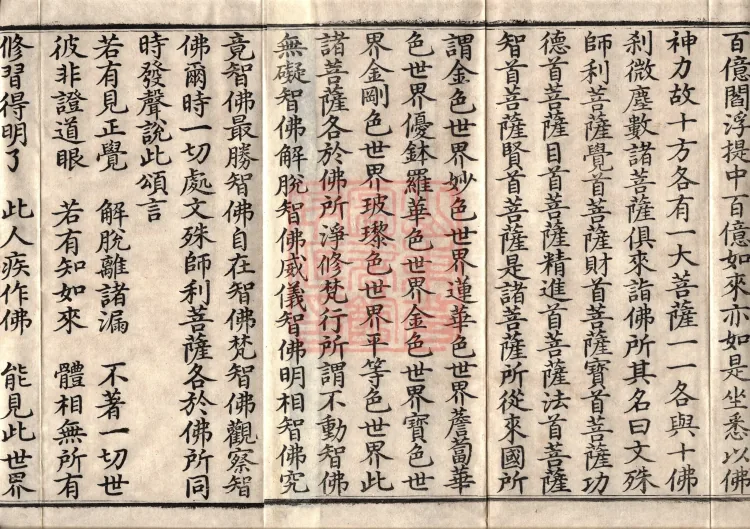 百億閻浮提中百億如來亦如是坐悉以佛
神力故十方各有一大菩薩一一各與十佛
剎微塵數諸菩薩俱來詣佛所其名曰文殊
師利菩薩覺首菩薩財首菩薩寶首菩薩功
德首菩薩目首菩薩精進首菩薩法首菩薩
智首菩薩賢首菩薩是諸菩薩所從來國所
謂金色世界妙色世界蓮華色世界薝蔔華
色世界優鉢羅華色世界金色世界寶色世
界金剛色世界玻瓈色世界平等色世界此
諸菩薩各於佛所淨修梵行所謂不動智佛
無礙智佛解脫智佛威儀智佛明相智佛究
竟智佛最勝智佛自在智佛梵智佛觀察智
佛爾時一切處文殊師利菩薩各於佛所同
時發聲說此頌言
若有見正覺 解脫離諸漏 不著一切世
彼非證道眼 若有知如來 體相無所有
修習得明了 此人疾作佛 能見此世界